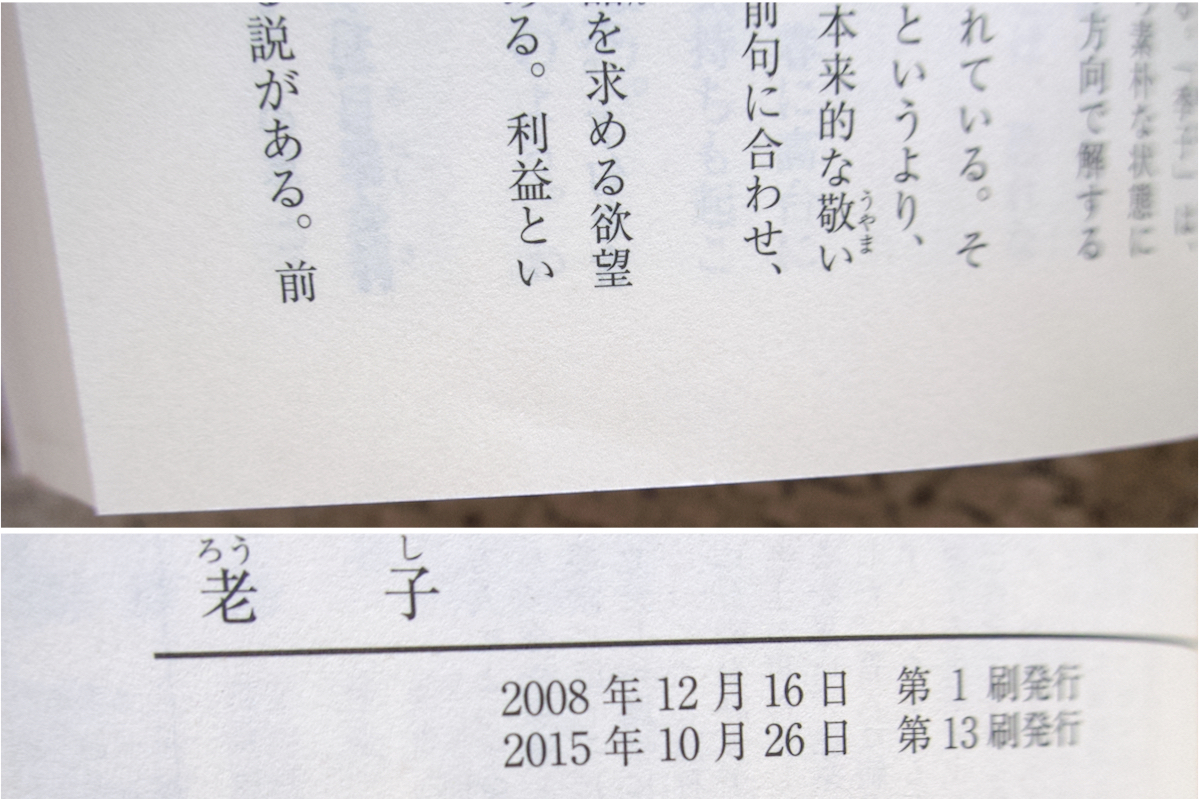 は、
素朴な状態に
方向で解する
れている。そ
というより、
本来的な敬い
うやま
前句に合わせ、
を求める欲望
める。利益とい
説がある。前
ろう し
老 子
2008年12月16日 第1刷発行
2015年10月26日 第13刷発行